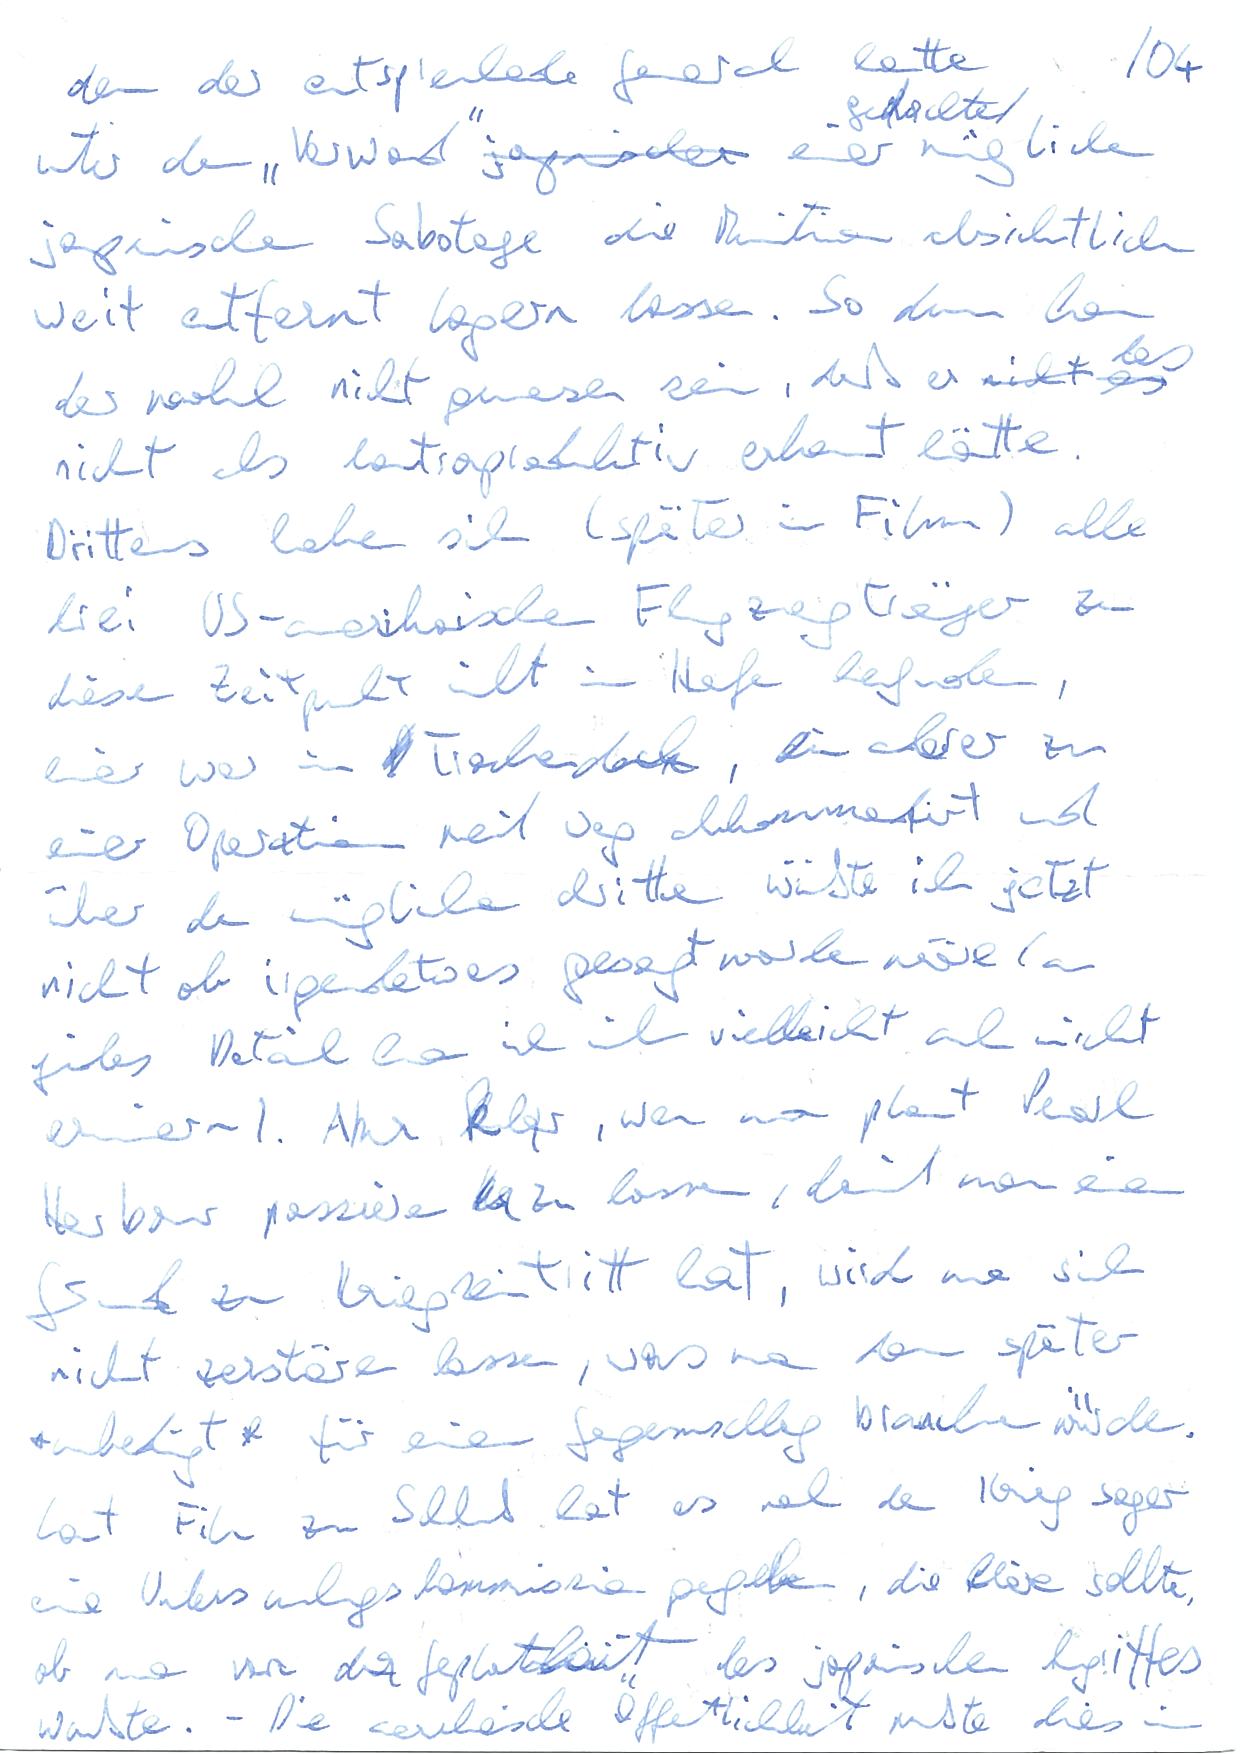 /04
denn der entsprechende General hatte
unter dem „Vorwand" japanischer einer gedachten möglichen
japanischen Sabotage die Munition absichtlich
weit entfernt lagern lassen. So dumm kann
der wohl nicht gewesen sein, daß er nicht es das
nicht als kontraproduktiv erkannt hätte.
Drittens haben sich (später im Film) alle
drei US-amerikanische Flugzeugträger zu
diesem Zeitpunkt nicht im Hafen befunden,
einer war im Trockendock, ein anderer zu
einer Operation weit weg abkommandiert und
über den möglichen dritten wüßte ich jetzt
nicht ob irgendetwas gesagt worden wäre (an
jedes Detail kann ich mich vielleicht auch nicht
erinnern). Aber klar, wenn man plant Pearl
Harbour passieren zu lassen, damit man einen
Grund zum Kriegseintritt hat, wird man sich
nicht zerstören lassen, was man dann später
*unbedingt* für einen Gegenschlag brauchen würde.
Laut Film zum Schluß hat es nach dem Krieg sogar
eine Untersuchungskommission gegeben, die klären sollte,
ob man von der Geplantheit des japanischen Angriffes
wußte. - Die amerikanische Öffentlichkeit mußte dies in